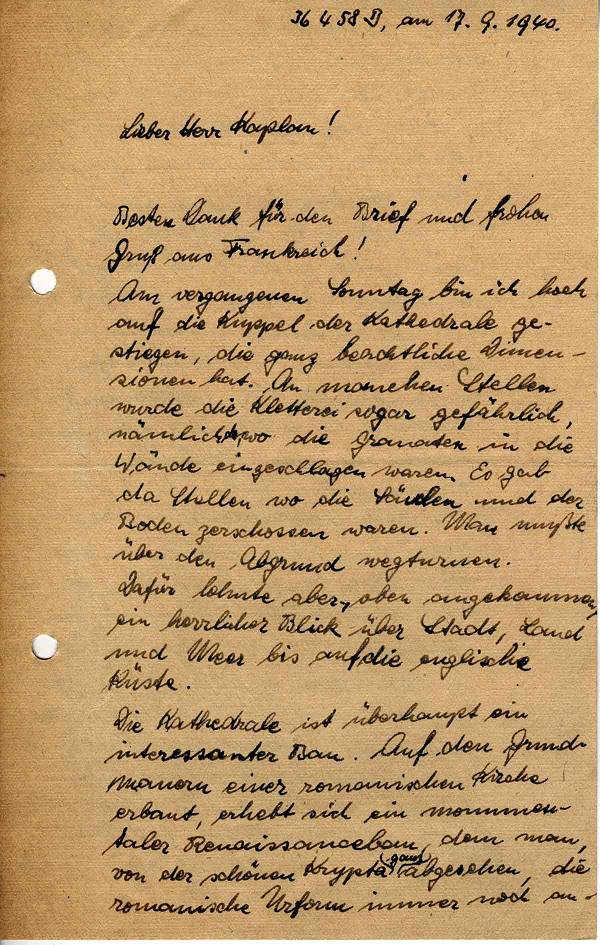 36 458 B, am 17. 9. 1940.
Lieber Herr Kaplan!
Besten Dank für den Brief und frohen
Gruß aus Frankreich!
Am vergangenen Sonntag bin ich hoch
auf die Kuppel der Kathedrale ge-
stiegen, die ganz beachtliche Dimen-
sionen hat. An manchen Stellen
wurde die Kletterei sogar gefährlich,
nämlich da, wo die Granaten in die
Wände eingeschlagen waren. Es gab
da Stellen wo die Säulen und der
Boden zerschossen waren. Man mußte
über den Abgrund wegturnen.
Dafür lohnte aber, oben angekommen,
ein herrlicher Blick über Stadt, Land
und Meer bis auf die englische
Küste.
Die Kathedrale ist überhaupt ein
interessanter Bau. Auf den Grund-
mauern einer romanischen Kirche
erbaut, erhebt sich ein monumen-
taler Renaissancebau, dem man,
von der schönen Krypta ganz abgesehen, die
romanische Urform immer noch an-